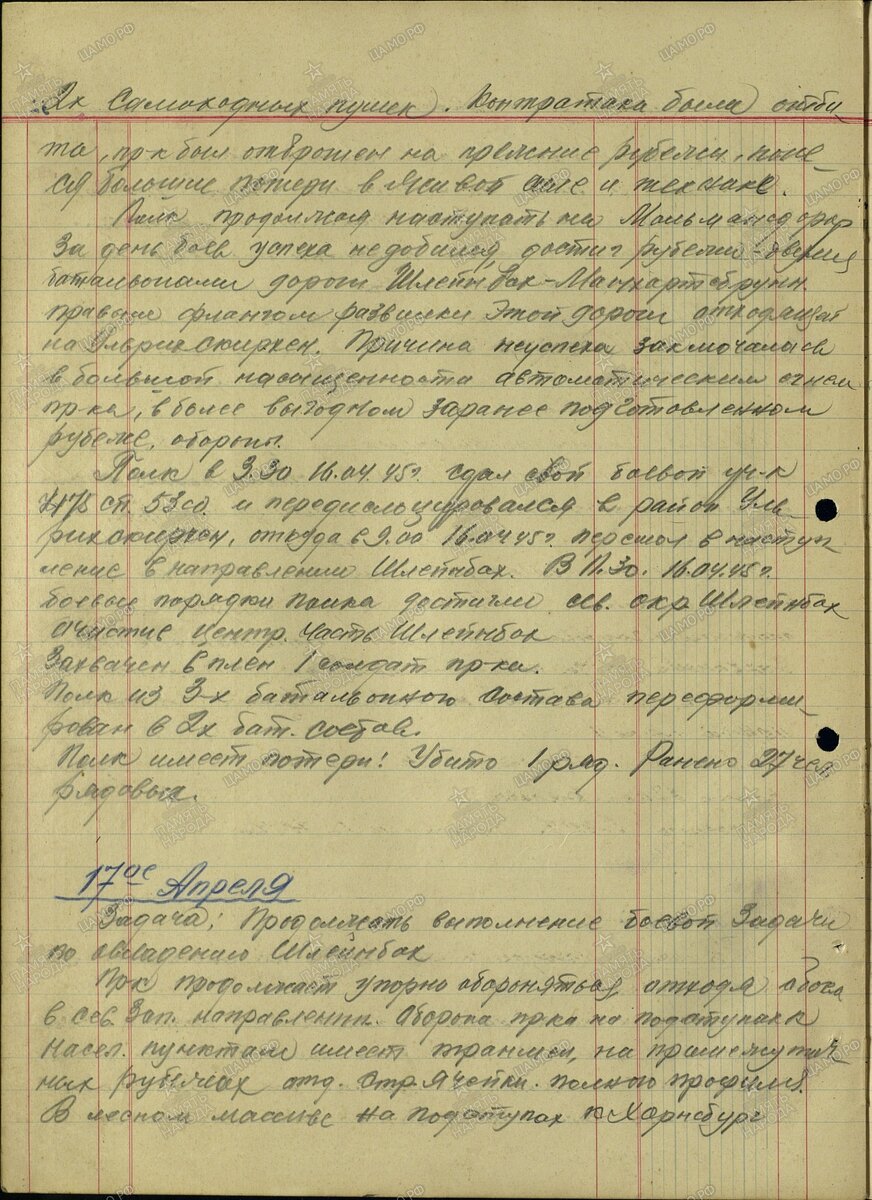 2х самоходных пушек. Контратака была отби-
та, пр-к был отброшен на прежние рубежи, поне
ся большие потери в живой силе и технике.
Полк продолжая наступать на Мольмансдорф
за день боев успеха не добился, достиг рубежа двумя
батальонами дороги Шлейнбах-Манхартсбрунн.
правым флангом развилки этой дороги отходящей
на Ульрихскирхен. Причина неуспеха заключалась
в большой насыщенности автоматическим огнем
пр-ка, в более выгодном заранее подготовленном
рубеже, обороны.
Полк в 3.30 16.04.45г. сдал свой боевой уч-к
475 сп. 53 сд. и передислоцировался в район Уль-
рихскирхен, откуда в 9.00 16.04.45г. перешол в наступ-
ление в направлении Шлейнбах. В 11.30. 16.04.45г.
боевые порядки полка достигли сев. окр Шлейнбах
очистив центр. часть Шлейнбах
Захвачен в плен 1 солдат пр-ка.
Полк из 3-х батальонного состава переформи-
рован в 2х бат. состав.
Полк имеет потери: Убито 1 ряд. Ранено 27 чел
рядовых.
17ое Апреля
Задача: Продолжать выполнение боевой задачи
по овладению Шлейнбах
Пр-к продолжает упорно обороняться отходя
в сев. зап. направлении. Оборона пр-ка на подступах к
насел. пунктам имеет траншеи, на промежуточ
ных рубежах отд. стр. ячейки. полного профиля.
В лесном массиве на подступах к Хорнсбург